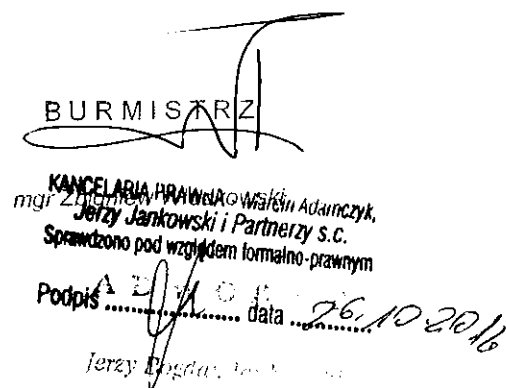 BURMISTRZ
mgr Zbigniew
KANCELARIA PRAWNA Marcin Adamczyk,
Jerzy Jankowski i Partnerzy s.c.
Sprawdzono pod względem formalno-prawnym
Podpis .................. data 26.10.2016
Jerzy Bogdan